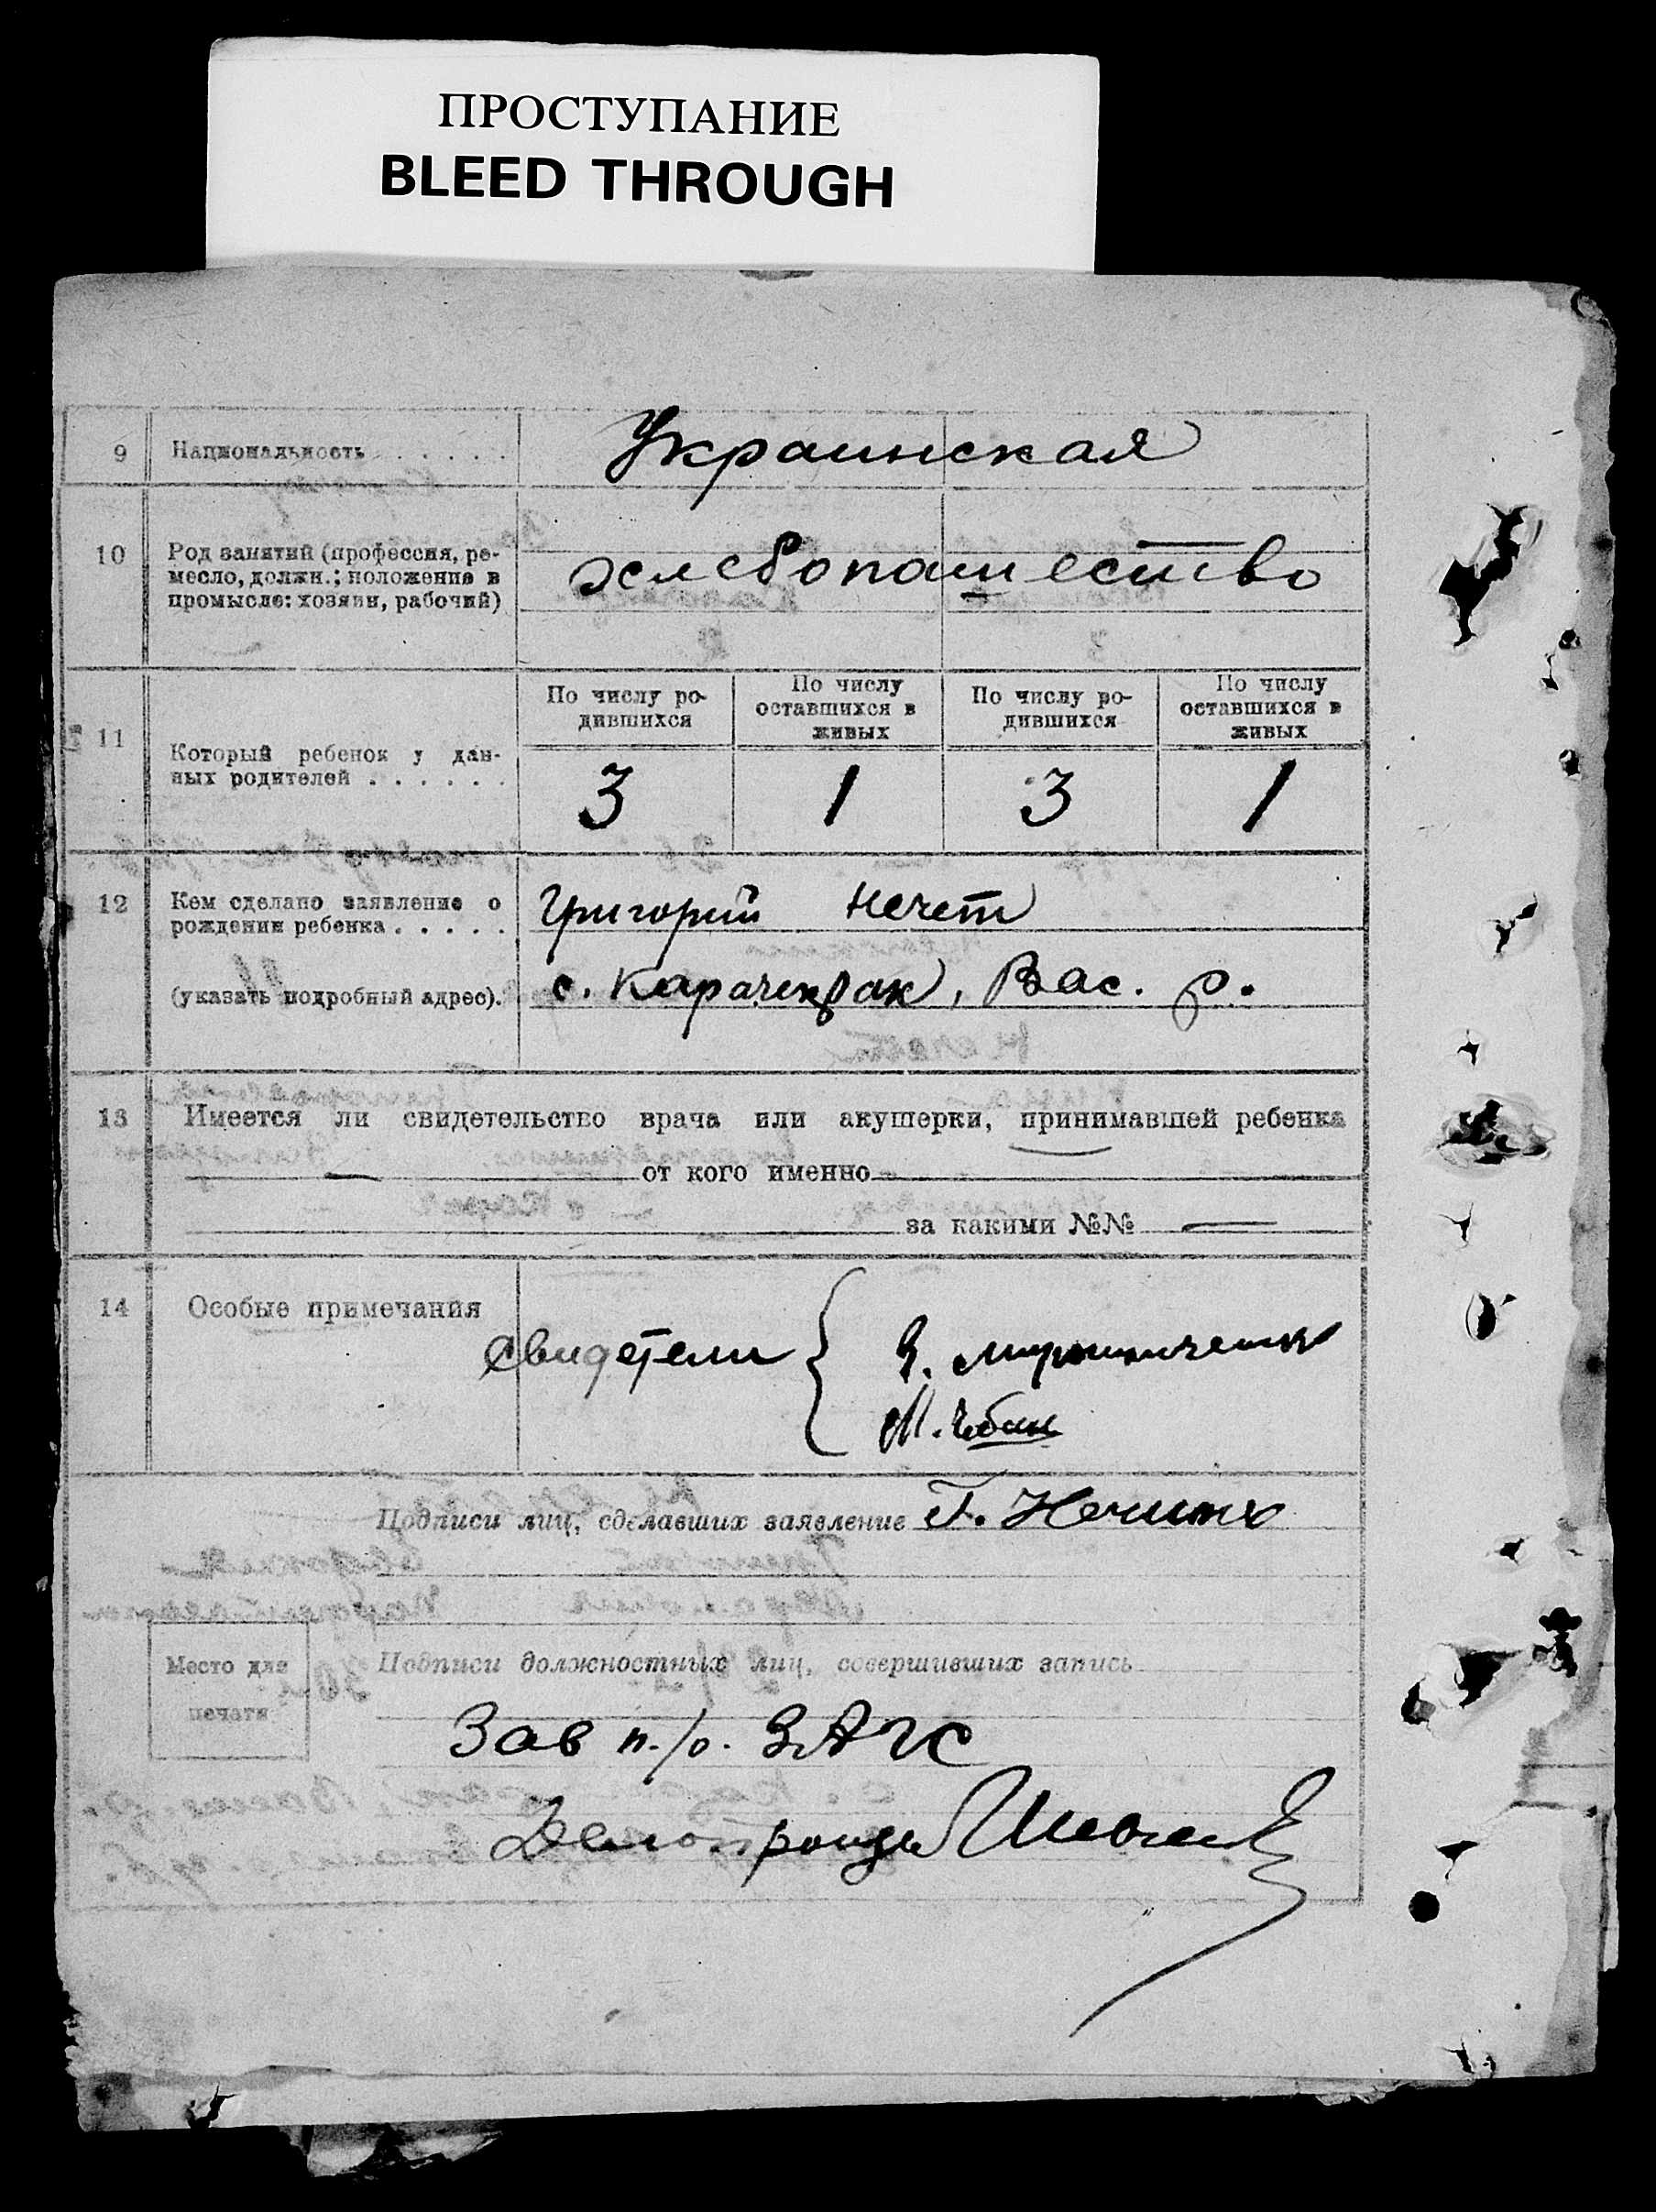 ПРОСТУПАНИЕ
BLEED THROUGH
9 Национальность . . . . . . Украинская
10 Род занятий (профессия, ре-
месло, должн.; положение в
промысле: хозяин, рабочий)
хлебопашество
11 Который ребенок у дан-
ных родителей . . . . . .
По числу ро-
дившихся
По числу
оставшихся в
живых
По числу ро-
дившихся
По числу
оставшихся в
живых
3 1 3 1
12 Кем сделано заявление о
рождении ребенка . . . . .
Григорий Нечет
(указать подробный адрес). с. Карачекрак, Вас. р.
13 Имеется ли свидетельство врача или акушерки, принимавшей ребенка
— от кого именно
за какими №№ —
14 Особые примечания
Свидетели {
М.
Подписи лиц, сделавших заявление Г.
Место для
печати
Подписи должностных лиц, совершивших запись
Зав п./о. ЗАГС